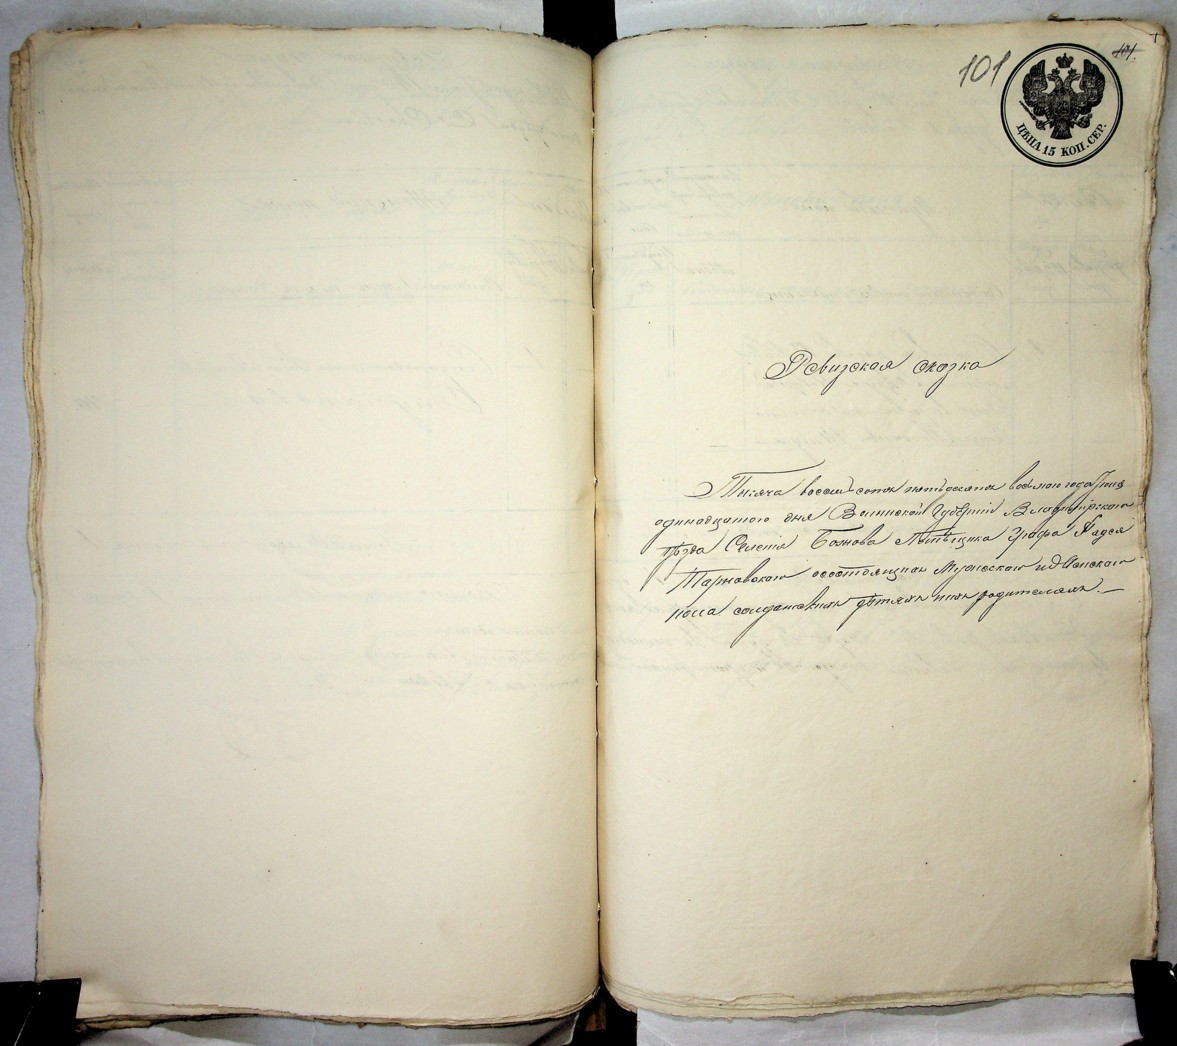 101
101.
ЦѢНА 15 КОП. СЕР.
Ревизская сказка
Тысяча восемьсотъ пятьдесятъ восьмого года Іюня
одинадцатого дня Волинской Губерніи Владимірского
Уѣзда Селенія Помѣщика Графа Фадея
Тарновского осостоящихъ Мужеска и Женска
пола солдатскихъ дѣтяхъ ихъ родителяхъ. —